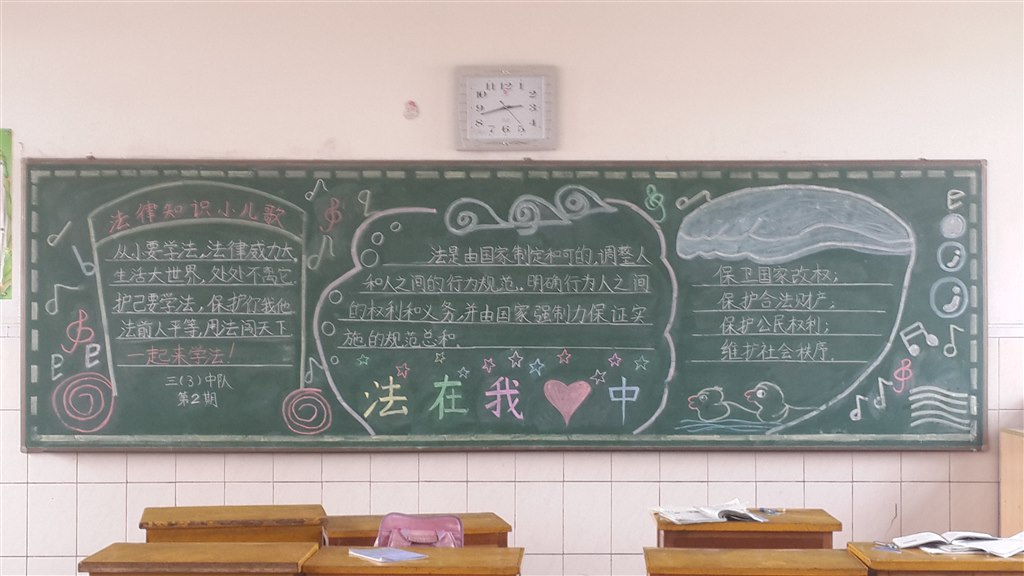 法律知识小儿歌
从小要学法,法律威力大
生活大世界,处处不离它
护己要学法,保护你我他
法前人平等,用法闯天下
一起来学法!
三(3)中队
第2期
法是由国家制定和可的,调整人
和人之间的行为规范.明确行为人之间
的权利和义务,并由国家强制力保证实
施的规范总和.
法在我中
保卫国家政权;
保护合法财产;
保护公民权利;
维护社会秩序.